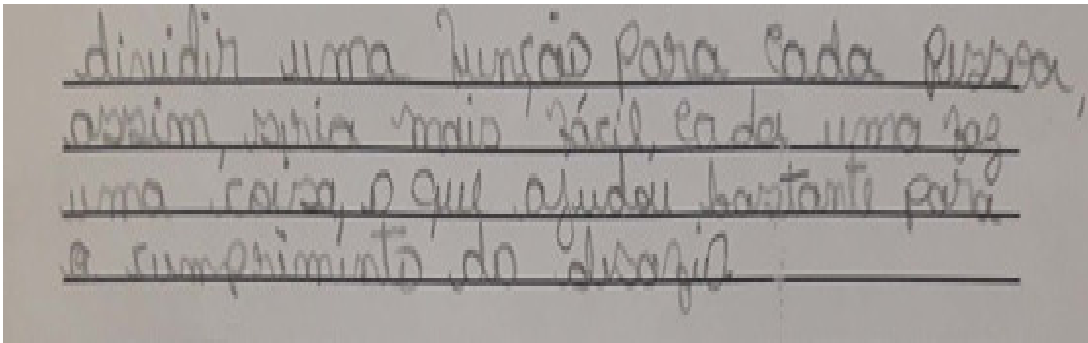 dividir uma função para cada pessoa,
assim seria mais fácil, cada uma faz
uma coisa, o que ajudou bastante para
o cumprimento do desafio